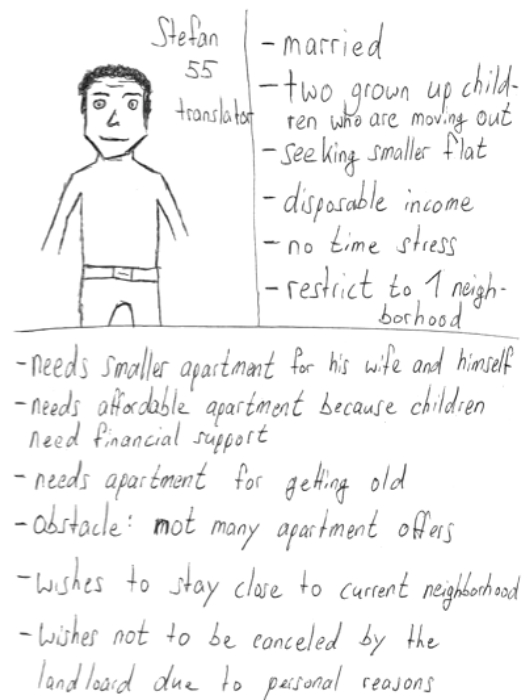 Stefan
55
translator
- married
- two grown up child-
ren who are moving out
- seeking smaller flat
- disposable income
- no time stress
- restrict to 1 neigh-
borhood
- needs smaller apartment for his wife and himself
- needs affordable apartment because children
need financial support
- needs apartment for getting old
- obstacle: not many apartment offers
- wishes to stay close to current neighborhood
- wishes not to be canceled by the
landloard due to personal reasons